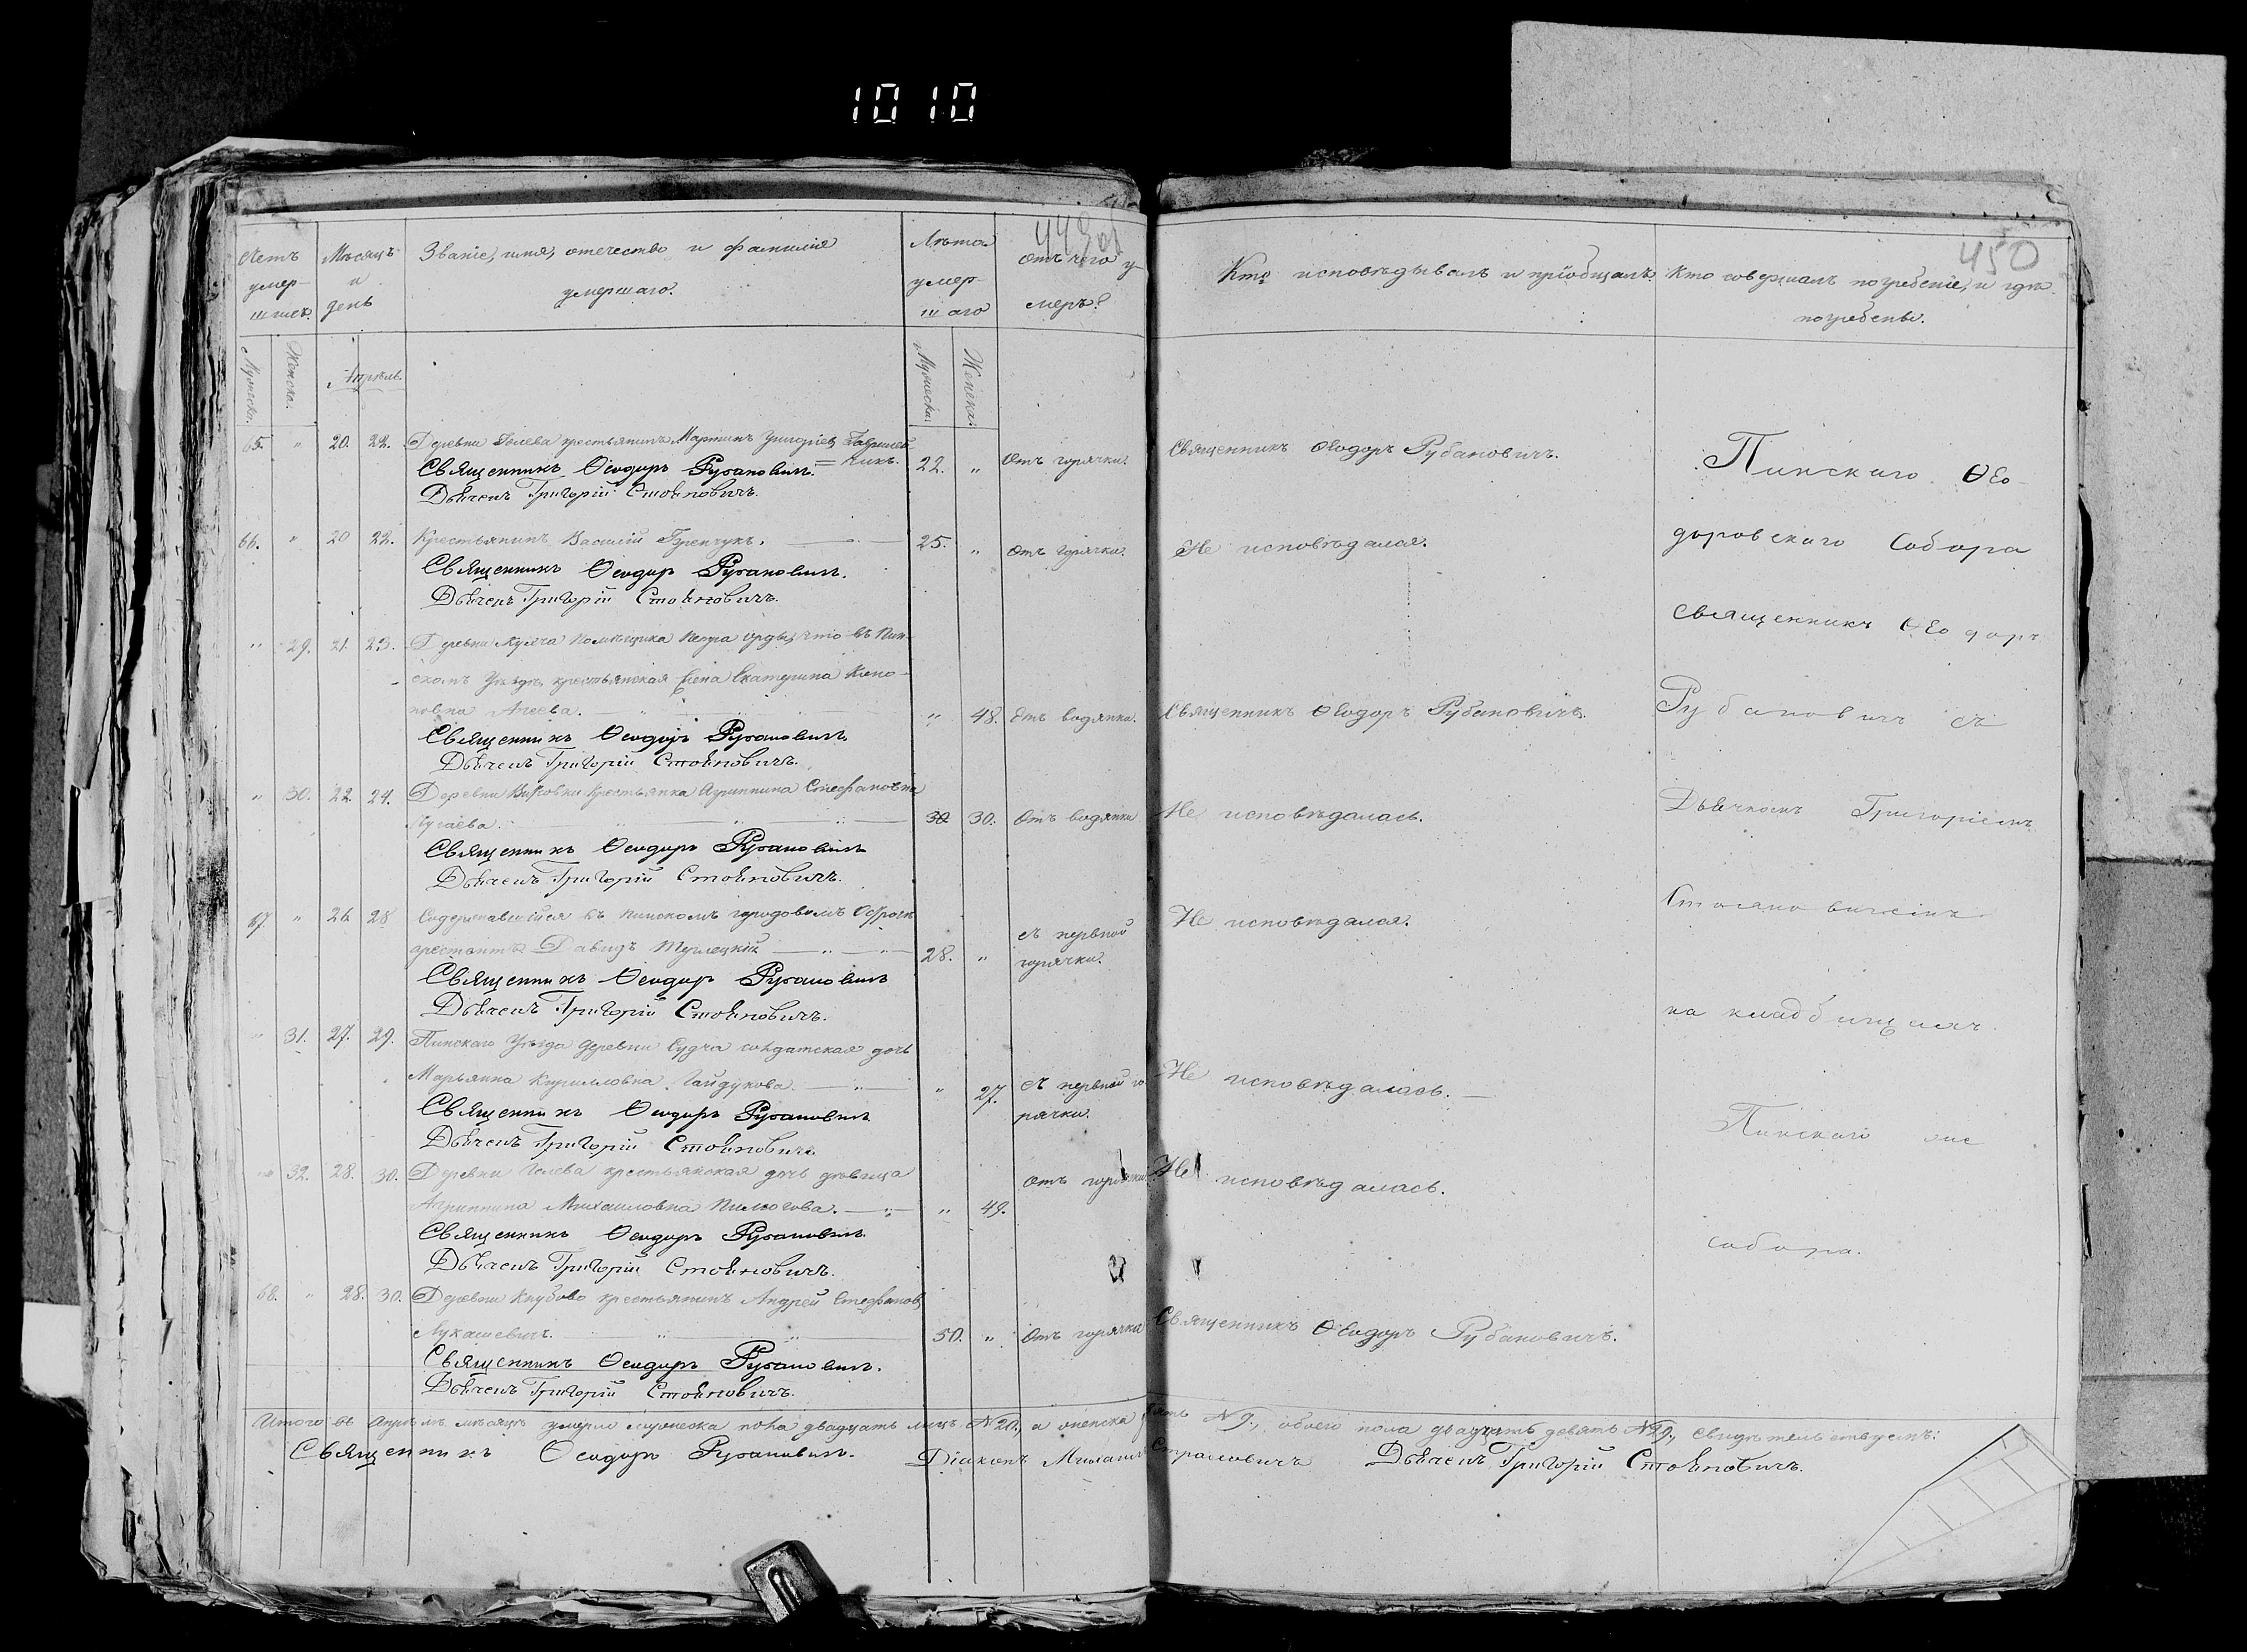 1010
449об
450
Счетъ умер-шихъ.
Мѣсяцъ и день
Званіе, имя, отечество и фамилія умершаго.
Лѣта умер-шаго
Отъ чего у-меръ?
Кто исповѣдывалъ и пріобщалъ.
Кто совершалъ погребеніе, и гдѣ погребены.
Мужеска.
Женска.
Апрѣль.
Мужеска.
Женска.
65. " 20. 22. Деревни крестьянинъ Мартинъ Григоріев
22. " Отъ горячки. Священникъ Ѳеодоръ Рубановичъ.
Священникъ Ѳеодоръ Рубановичъ.
Дьячекъ Григорій Стояновичъ.
66. " 20 22. Крестьянинъ Василій Гренчукъ.
25. " Отъ горячки. Не исповѣдался.
Священникъ Ѳеодоръ Рубановичъ.
Дьячекъ Григорій Стояновичъ.
" 29. 21. 23. Деревни Помѣщика Петра Орды, что въ Пин-
скомъ Уѣздѣ, крестьянская жена Екатерина
новна Агеева.
" 48. Отъ водянки. Священникъ Ѳеодоръ Рубановичъ.
Священникъ Ѳеодоръ Рубановичъ.
Дьячекъ Григорій Стояновичъ.
" 30. 22. 24. Деревни крестьянка Агриппина Стефановна
Пугаева.
30 30. Отъ водянки Не исповѣдалась.
Священникъ Ѳеодоръ Рубановичъ
Дьячекъ Григорій Стояновичъ.
67. " 26. 28 Содержавшійся въ Пинскомъ городовомъ Острогѣ
арестантъ Давидъ
28. " съ нервной горячки. Не исповѣдался.
Священникъ Ѳеодоръ Рубановичъ
Дьячекъ Григорій Стояновичъ.
" 31. 27. 29. Пинскаго Уѣзда деревни Судча солдатская дочь
Марьянна Кирилловна Гайдукова.
" 27. съ нервной го-рячки. Не исповѣдалась.
Священникъ Ѳеодоръ Рубановичъ
Дьячекъ Григорій Стояновичъ
" 32. 28. 30. Деревни крестьянская дочь дѣвица
Агриппина Михаиловна Пилюгова.
" 49. Отъ горячки. Не исповѣдалась.
Священникъ Ѳеодоръ Рубановичъ.
Дьячекъ Григорій Стояновичъ.
68. " 28. 30. Деревни Кнубово крестьянинъ Андрей Стефановъ
Лукашевичъ.
50. " Отъ горячки Священникъ Ѳеодоръ Рубановичъ.
Священникъ Ѳеодоръ Рубановичъ.
Дьячекъ Григорій Стояновичъ.
Пинскаго Ѳео-
доровскаго Собора
священникъ Ѳеодоръ
Рубановичъ съ
Дьячкомъ Григоріемъ
Стояновичемъ
на кладбищахъ
Пинскаго же
собора.
Итого въ Апрѣлѣ мѣсяцѣ умерло мужеска пола двадцать лицъ. №20., а женска девять №9., обоего пола двадцать девять №29., свидѣтельствуемъ:
Священникъ Ѳеодоръ Рубановичъ. Діаконъ Страховичъ Дьячекъ Григорій Стояновичъ.